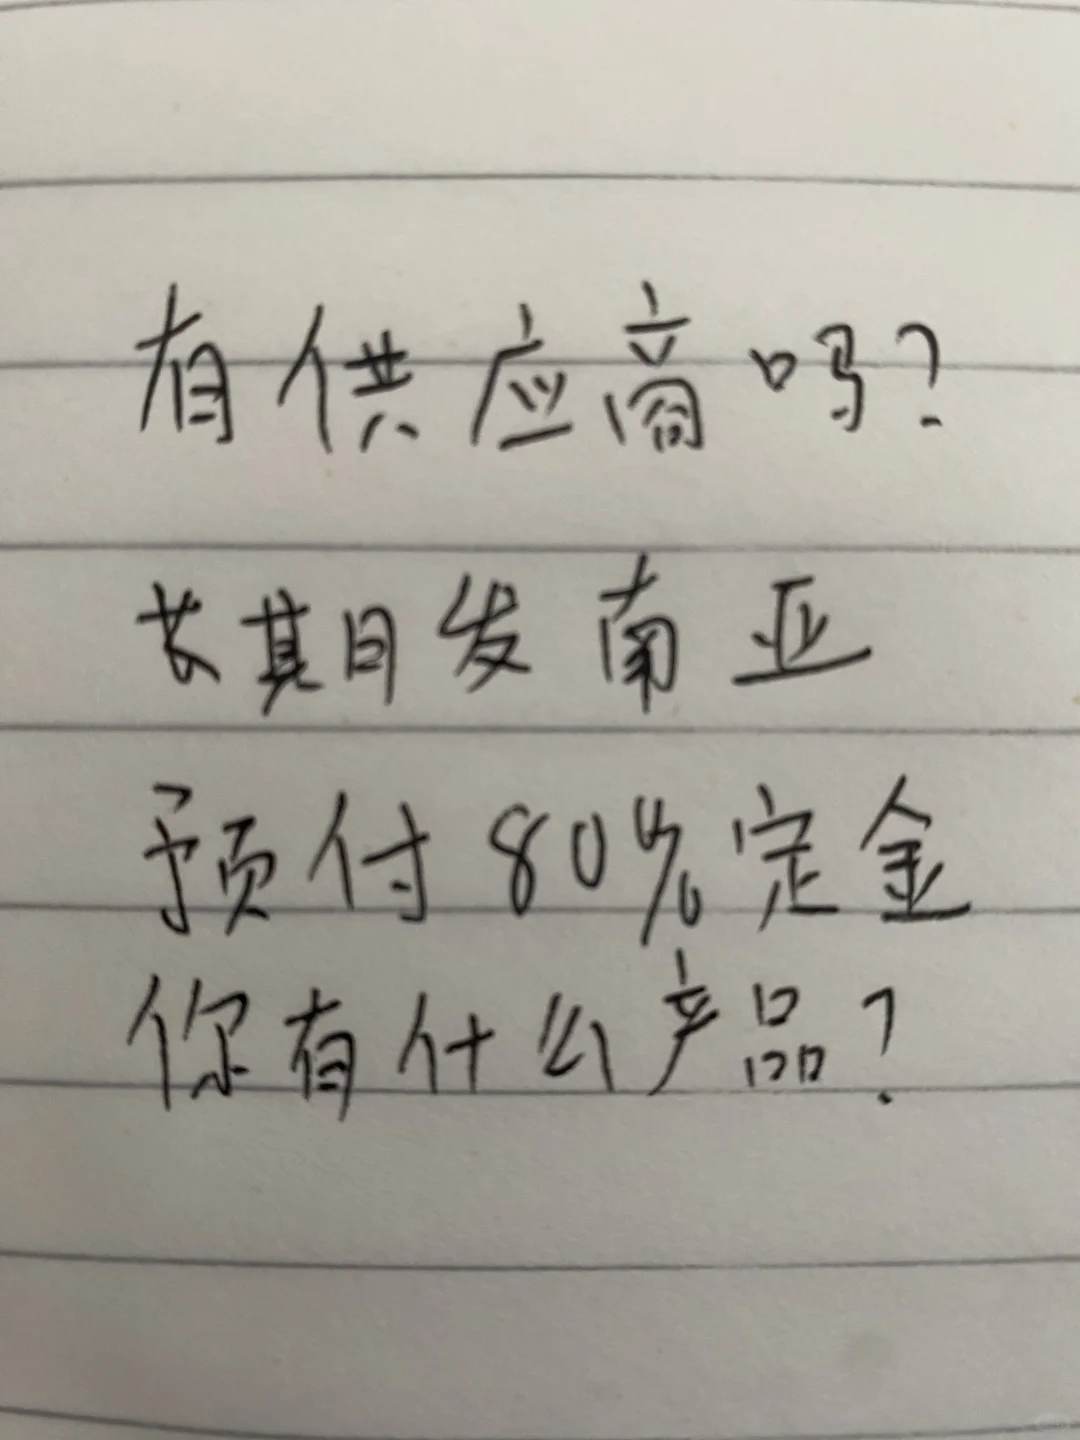 有供应商吗?
长期发南亚
预付80%定金
你有什么产品?